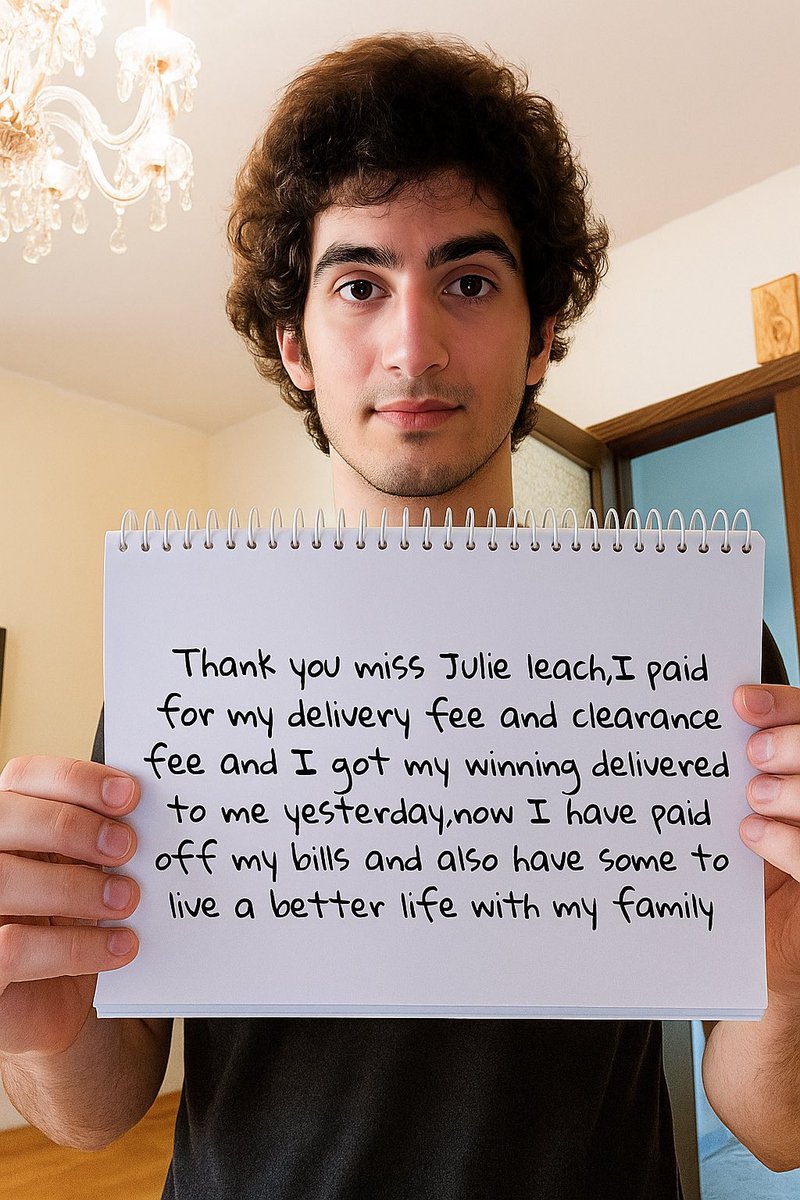 Thank you miss Julie leach,I paid
for my delivery fee and clearance
fee and I got my winning delivered
to me yesterday,now I have paid
off my bills and also have some to
live a better life with my family